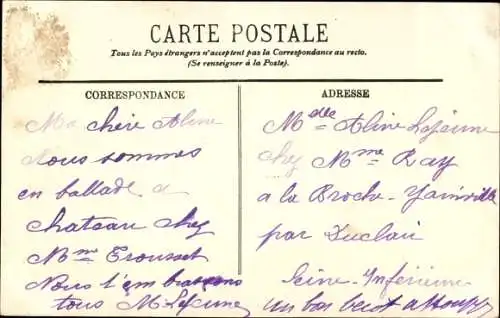 CARTE POSTALE
Tous les Pays étrangers n'acceptent pas la Correspondance au recto.
(Se renseigner à la Poste).
CORRESPONDANCE
Ma chère Aline
Nous sommes
en ballade a
chateau chez
Mme Trousset
Nous t'embrassons
tous M Lejeune
ADRESSE
Melle Aline Lejeune
chez Mme Ray
a la Broche-Yainville
par Duclair
Seine-Inférieure
Un bon becot a